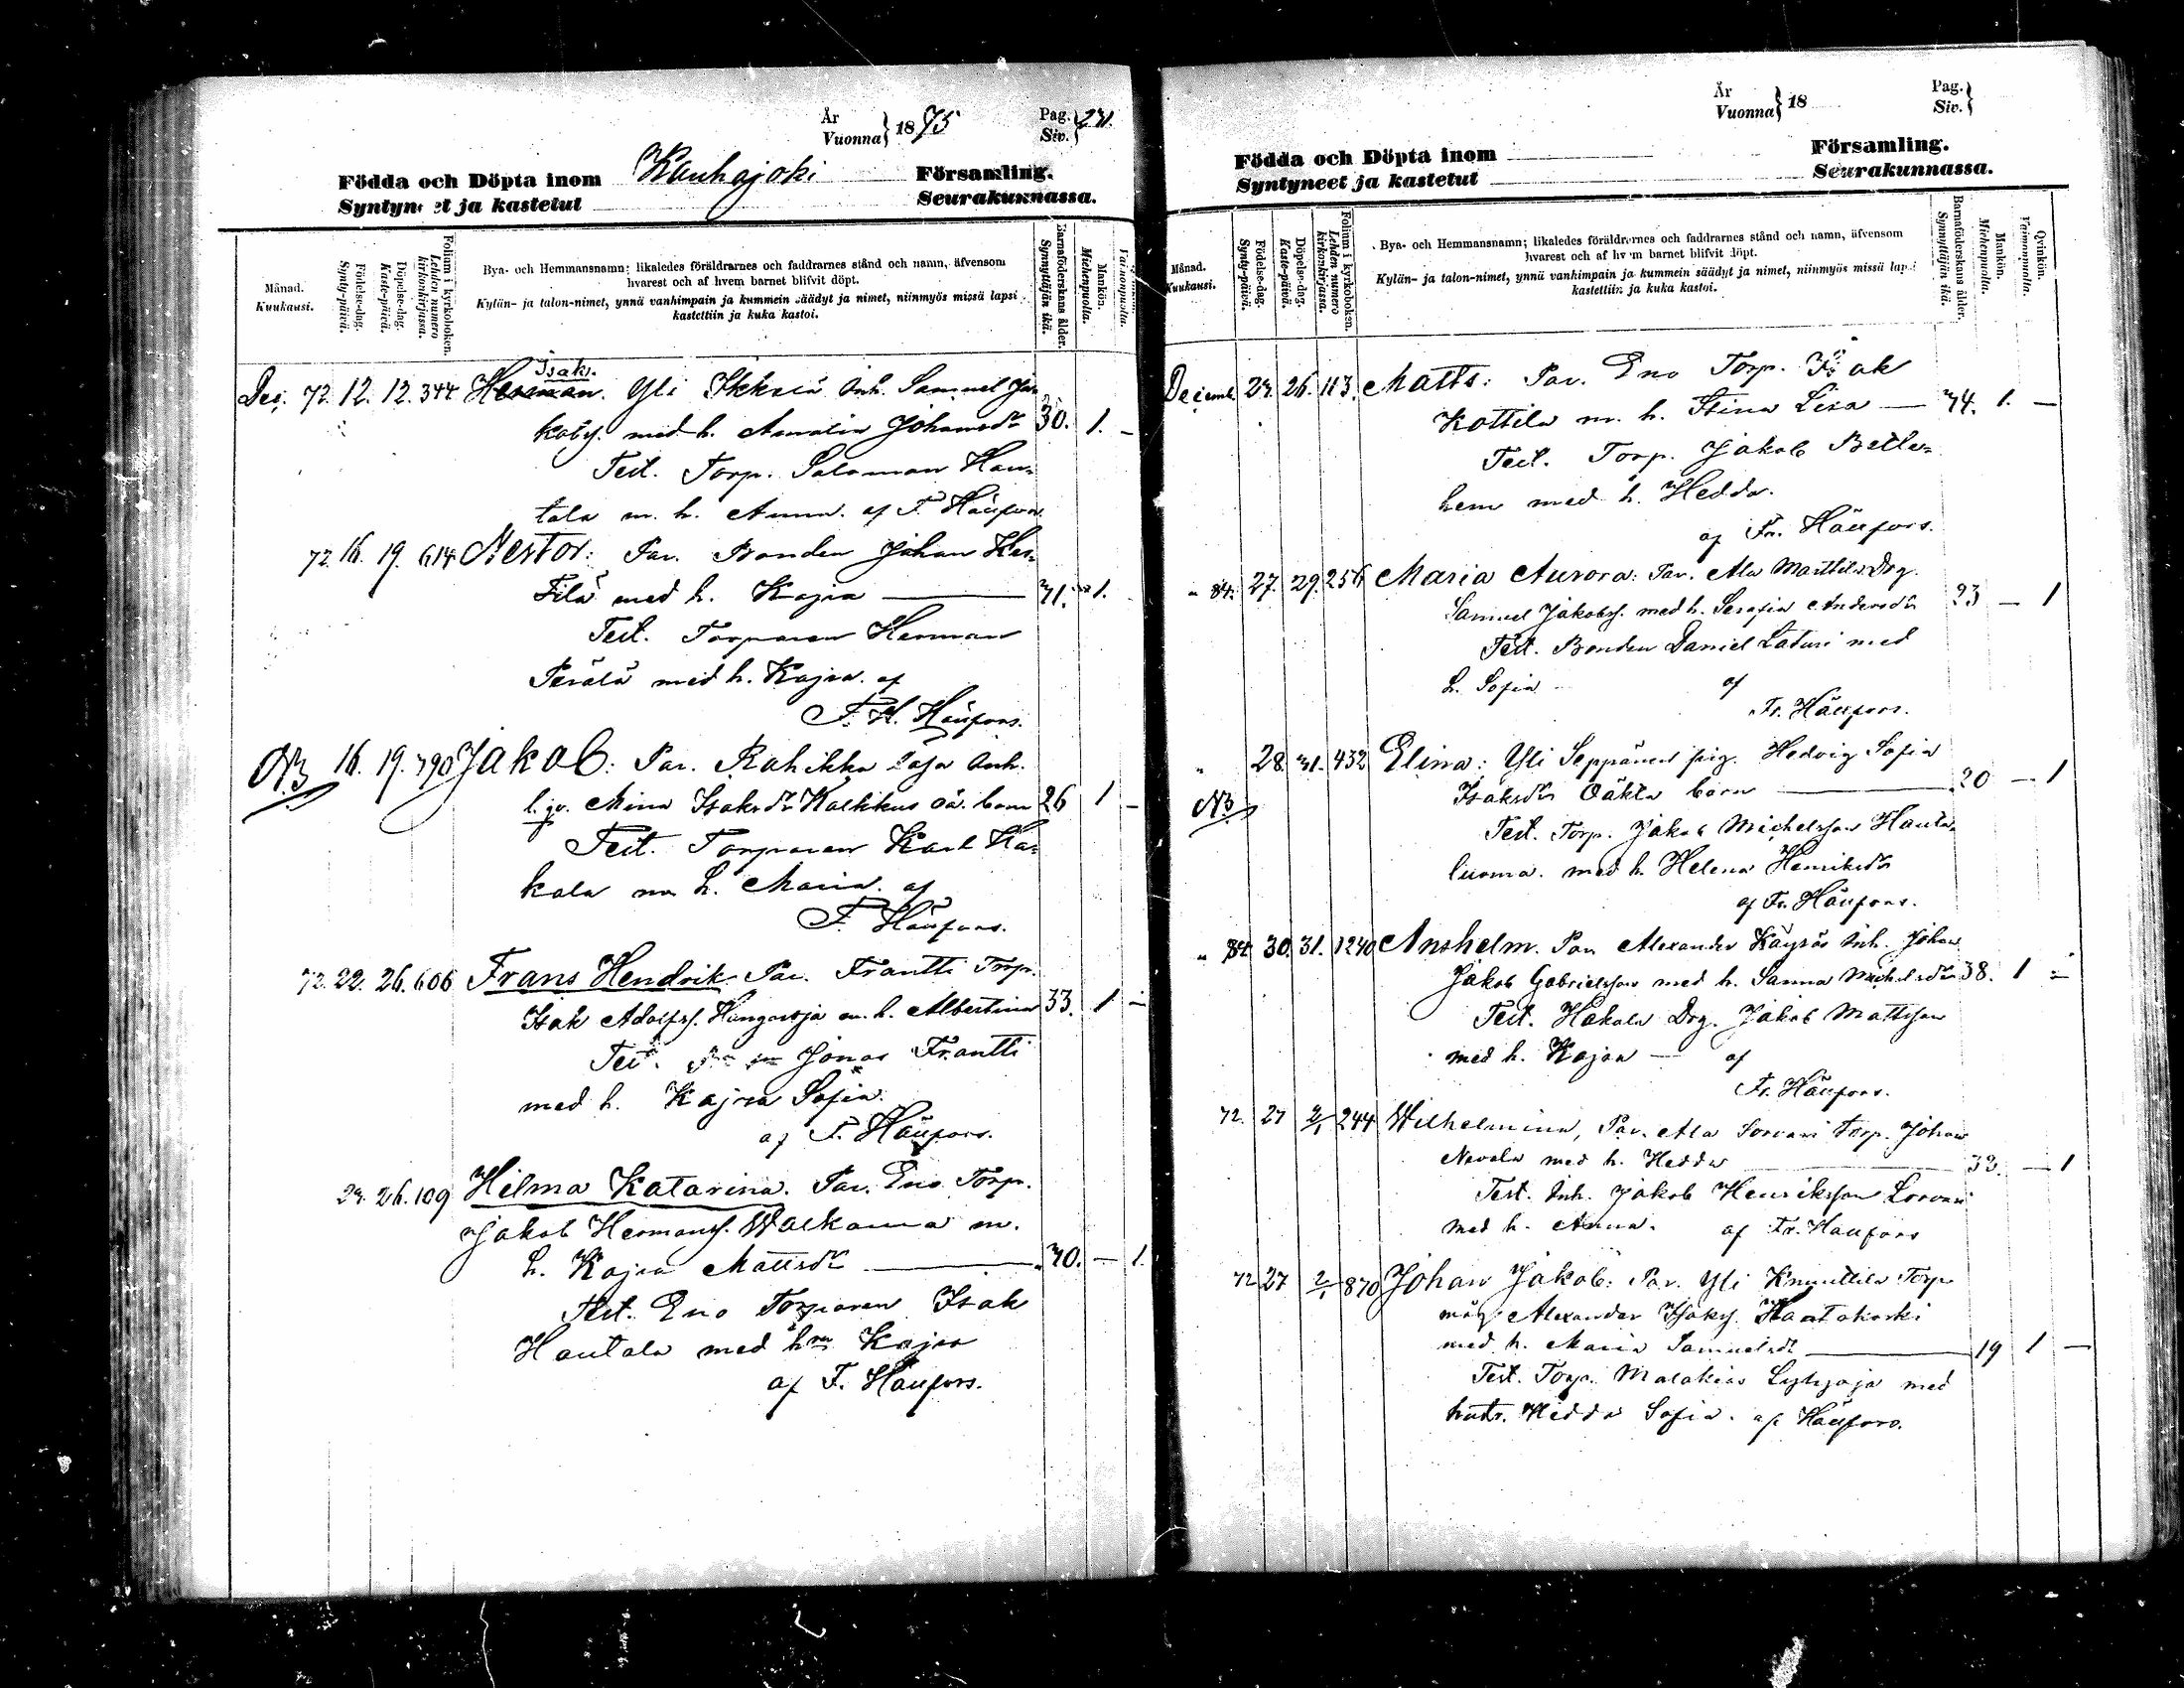 År
Vuonna} 1875
Pag.
Siv.} 231.
Födda och Döpta inom Kauhajoki Församling.
Syntyneet ja kastetut Seurakunnassa.
Månad.
Kuukausi.
Födelse-dag.
Synty-päivä.
Döpelse-dag.
Kaste-päivä.
Folium i kyrkoboken.
Lehden numero
kirkonkirjassa.
Bya- och Hemmansnamn; likaledes föräldrarnes och faddrarnes stånd och namn, äfvensom
hvarest och af hvem barnet blifvit döpt.
Kylän- ja talon-nimet, ynnä vanhimpain ja kummein säädyt ja nimet, niinmyös missä lapsi
kastettiin ja kuka kastoi.
Barnaföderskans ålder.
Synnyttäjän ikä.
Mankön.
Miehenpuolia.
Vaimonpuolia.
Isak.
Dec. 72. 12. 12. 344 Herman. Yli Ikkelä Inh. Samuel Ja-
kobs. med h. Amalia Johansdr 30. 1. -
Test. Torp. Salomon Hau-
tala m. h. Anna. af F. Häufors.
72. 16. 19. 614 Nestor: Par. Bonden Johan Kes-
Filä med h. Kajsa — 31. 1.
Test. Torparen Herman
Perälä med h. Kajsa. af
F. H. Häufors.
NB 16. 19. 790 Jakob: Par. Rahikka Inh.
Mina Isaksdr oä. barn 26 1 -
Test. Torparen Karl Ha-
kala m h. Maria. af
F. Häufors.
72. 22. 26. 606 Frans Hendrik. Par. Frantti Torp.
Isak Adolfs. Hangasoja m. h. Albertina 33. 1 -
Test. Jonas Frantti
med h. Kajsa Sofia.
af F. Häufors.
23. 26. 109 Hilma Katarina. Par. Eno Torp.
Jakob Hermans. Walkama m.
h. Kajsa Mattsdr — 30. - 1.
Test. Eno Torparen Isak
Hautala med hu Kajsa
af F. Häufors.
År
Vuonna} 18
Pag.
Siv.}
Födda och Döpta inom Församling.
Syntyneet ja kastetut Seurakunnassa.
Månad.
Kuukausi.
Födelse-dag.
Synty-päivä.
Döpelse-dag.
Kaste-päivä.
Folium i kyrkoboken.
Lehden numero
kirkonkirjassa.
Bya- och Hemmansnamn; likaledes föräldrarnes och faddrarnes stånd och namn, äfvensom
hvarest och af hvem barnet blifvit döpt.
Kylän- ja talon-nimet, ynnä vanhimpain ja kummein säädyt ja nimet, niinmyös missä lapsi
kastettiin ja kuka kastoi.
Barnaföderskans ålder.
Synnyttäjän ikä.
Mankön.
Miehenpuolia.
Qvinkön.
Vaimonpuolia.
Decemb. 23. 26. 113. Matts: Par. Eno Torp. Isak
Kottila m. h. Stina Lisa — 34. 1. -
Test. Torp. Jakob Betle-
hem med h. Hedda.
af Fr. Häufors.
" 84. 27. 29. 256 Maria Aurora: Par. Ala Marttila Drg.
Samuel Jakobs. med h. Serafia Andersdr 23 - 1
Test. Bonden Daniel Laturi med
h. Sofia af
Fr. Häufors.
" 28. 31. 432 Elina: Yli Seppänen pig. Hedvig Sofia
NB Isaksdr oäkta barn — 20 - 1
Test. Torp. Jakob Michelsson Hauta-
luoma. med h. Helena Henriksdr
af Fr. Häufors.
" 84. 30. 31. 1240 Anshelm. Par. Alexander Käyräs Inh. Johan
Jakob Gabrielsson med h. Sanna Michelsdr 38. 1 -
Test. Hakala Drg. Jakob Mattsson
med h. Kajsa — af
Fr. Häufors.
72. 27 2/1 244 Wilhelmina, Par. Ala Sorvari Torp. Johan
Nevala med h. Hedda — 33. - 1
Test. Inh. Jakob Henriksson Sorvari
med h. Anna. af Fr. Haufors
72 27 2/1 870 Johan Jakob: Par. Yli Knuuttila Torp
måg Alexander Isaks. Hautakoski
med h. Maria Samuelsdr — 19 1 -
Test. Torp. Malakias Lylyoja med
hustr. Hedda Sofia. af Häufors.